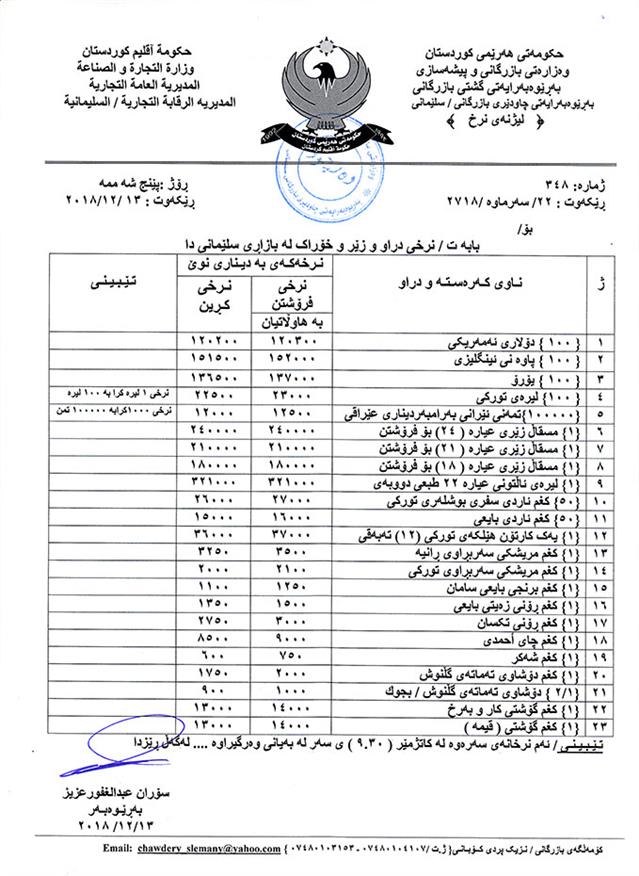 حکومەتی هەرێمی کوردستان
وەزارەتی بازرگانی و پیشەسازی
بەڕێوەبەرایەتی گشتی بازرگانی
بەڕێوەبەرایەتی چاودێری بازرگانی / سلێمانی
﴿ لیژنەی نرخ ﴾
حكومة أقليم كوردستان
وزارة التجارة و الصناعة
المديرية العامة التجارية
المديريه الرقابة التجارية / السليمانية
حکومەتی هەرێمی کوردستان
حكومة اقليم كردستان
ژمارە: ٣٤٨
ڕێکەوت : ٢٢/ سەرماوە /٢٧١٨
ڕۆژ :پێنج شه ممه
ڕێکەوت : ١٣ /٢٠١٨/١٢
بۆ/
بابه ت / نرخی دراو و زێر و خۆراک له بازاڕی سلێمانی دا
ژ | ناوی کەرەستە و دراو | نرخەکەی به دیناری نوێ | تێبینی
نرخی فرۆشتن به هاوڵاتیان | نرخی کڕین
١ | {١٠٠ } دۆلاری ئەمەریکی | ١٢٠٣٠٠ | ١٢٠٢٠٠
٢ | {١٠٠ } پاوه نی ئینگلیزی | ١٥٢٠٠٠ | ١٥١٥٠٠
٣ | {١٠٠ } یۆرۆ | ١٣٧٠٠٠ | ١٣٦٥٠٠
٤ | {١٠٠ } لیرەی تورکی | ٢٣٠٠٠ | ٢٢٥٠٠ | نرخی ١ لیره کرا به ١٠٠ لیره
٥ | {١٠٠٠٠٠}تمەنی ئێرانی بەرامبەردیناری عێراقی | ١٢٥٠٠ | ١٢٠٠٠ | نرخی ١٠٠٠کرابه ١٠٠٠٠٠ تمن
٦ | {١} مسقاڵ زێری عیاره ( ٢٤) بۆ فرۆشتن | ٢٤٠٠٠٠ | ٢٤٠٠٠٠
٧ | {١} مسقاڵ زێری عیاره ( ٢١) بۆ فرۆشتن | ٢١٠٠٠٠ | ٢١٠٠٠٠
٨ | {١} مسقاڵ زێری عیاره ( ١٨) بۆ فرۆشتن | ١٨٠٠٠٠ | ١٨٠٠٠٠
٩ | {١} لیرەی ئاڵتونی عیاره ٢٢ طبعی دووبەی | ٣٢١٠٠٠ | ٣٢١٠٠٠
١٠ | {٥٠} کغم ئاردی سفری بوشلەری تورکی | ٢٧٠٠٠ | ٢٦٠٠٠
١١ | {٥٠} کغم ئاردی بایعی | ١٦٠٠٠ | ١٥٠٠٠
١٢ | {١} یەک کارتۆن هێلکەی تورکی (١٢) تەبەقی | ٣٧٠٠٠ | ٣٦٠٠٠
١٣ | {١} کغم مریشکی سەربڕاوی ڕانیه | ٣٥٠٠ | ٣٢٥٠
١٤ | {١} کغم مریشکی سەربڕاوی تورکی | ٢١٠٠ | ٢٠٠٠
١٥ | {١} کغم برنجی بایعی سامان | ١٢٥٠ | ١١٠٠
١٦ | {١} کغم ڕۆنی زەیتی بایعی | ١٥٠٠ | ١٣٥٠
١٧ | {١} کغم ڕۆنی تکسان | ٣٠٠٠ | ٢٧٥٠
١٨ | {١} کغم چای أحمدی | ٩٠٠٠ | ٨٥٠٠
١٩ | {١} کغم شەکر | ٧٥٠ | ٦٠٠
٢٠ | {١} کغم دۆشاوی تەماتەی گڵنوش | ٢٠٠٠ | ١٧٥٠
٢١ | {٢/١ } دۆشاوی تەماتەی گڵنوش / بجوك | ١٠٠٠ | ٩٠٠
٢٢ | {١} کغم گۆشتی کار و بەرخ | ١٤٠٠٠ | ١٣٠٠٠
٢٣ | {١} کغم گۆشتی ( قیمه ) | ١٤٠٠٠ | ١٣٠٠٠
تێبینی / ئەم نرخانەی سەرەوه له کاتژمێر ( ٩.٣٠ ) ی سەر له بەیانی وەرگیراوه .... لەگەڵ ڕێزدا
سۆران عبدالغفورعزیز
بەڕێوەبەر
٢٠١٨/١٢/١٣
کۆمەڵگەی بازرگانی / نزیک پردی کۆبانی{ ژ.ت /٠٧٤٨٠١٠٤١٠٧ - ٠٧٤٨٠١٠٣١٥٣ } Email: chawdery_slemany@yahoo.com